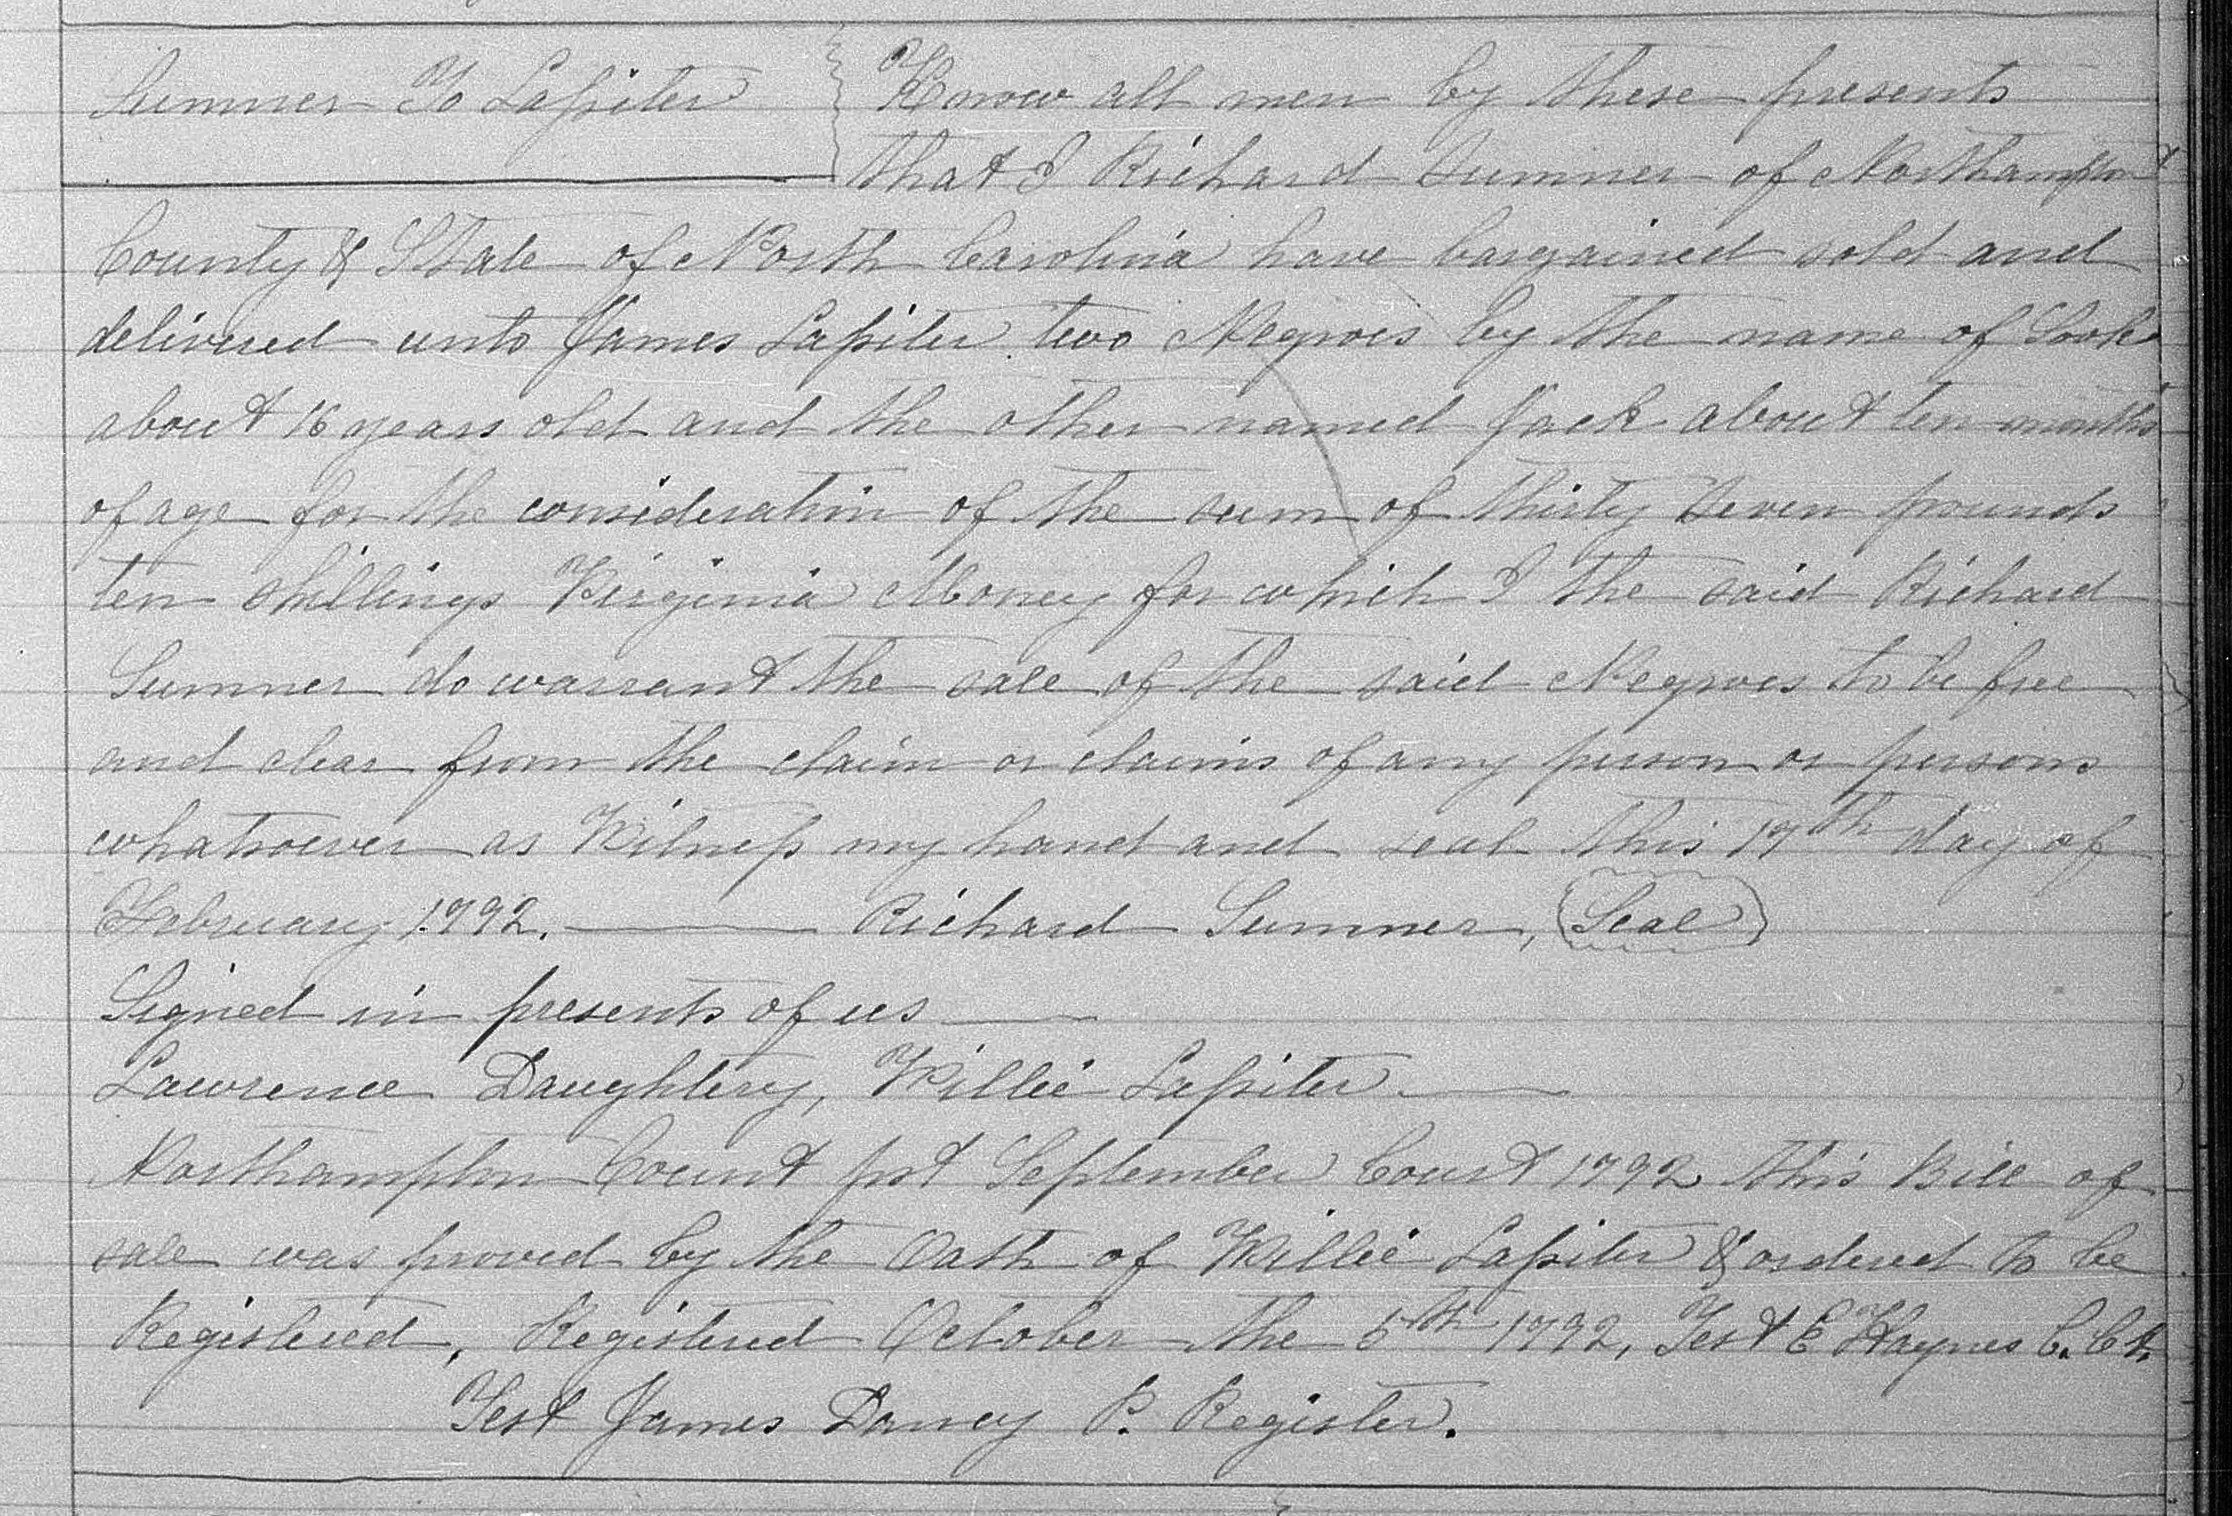 Sumner To Lassiter Know all men by these presents
that I Richard Sumner of Northampton
County & State of North Carolina have bargained sold and
delivered unto James Lassiter two Negroes by the name of Sook
about 16 years old and the other named Jack about ten months
of age for the consideration of the sum of thirty Seven pounds
ten shillings Virginia Money for which I the said Richard
Sumner do warrant the sale of the said Negroes to be free
and clear from the claim or claims of any person or persons
whatsoever as Witness my hand and seal this 17th day of
February 1792. Richard Sumner, Seal
Signed in presents of us
Lawrence Daughtery, Willie Lassiter
Northampton Count pst September Court 1792 this Bill of
sale was proved by the Oath of Willie Lassiter & ordered to be
Registered, Registered October the 5th 1792, Test E Haynes C. Ct.
Test James Dancy P. Register.